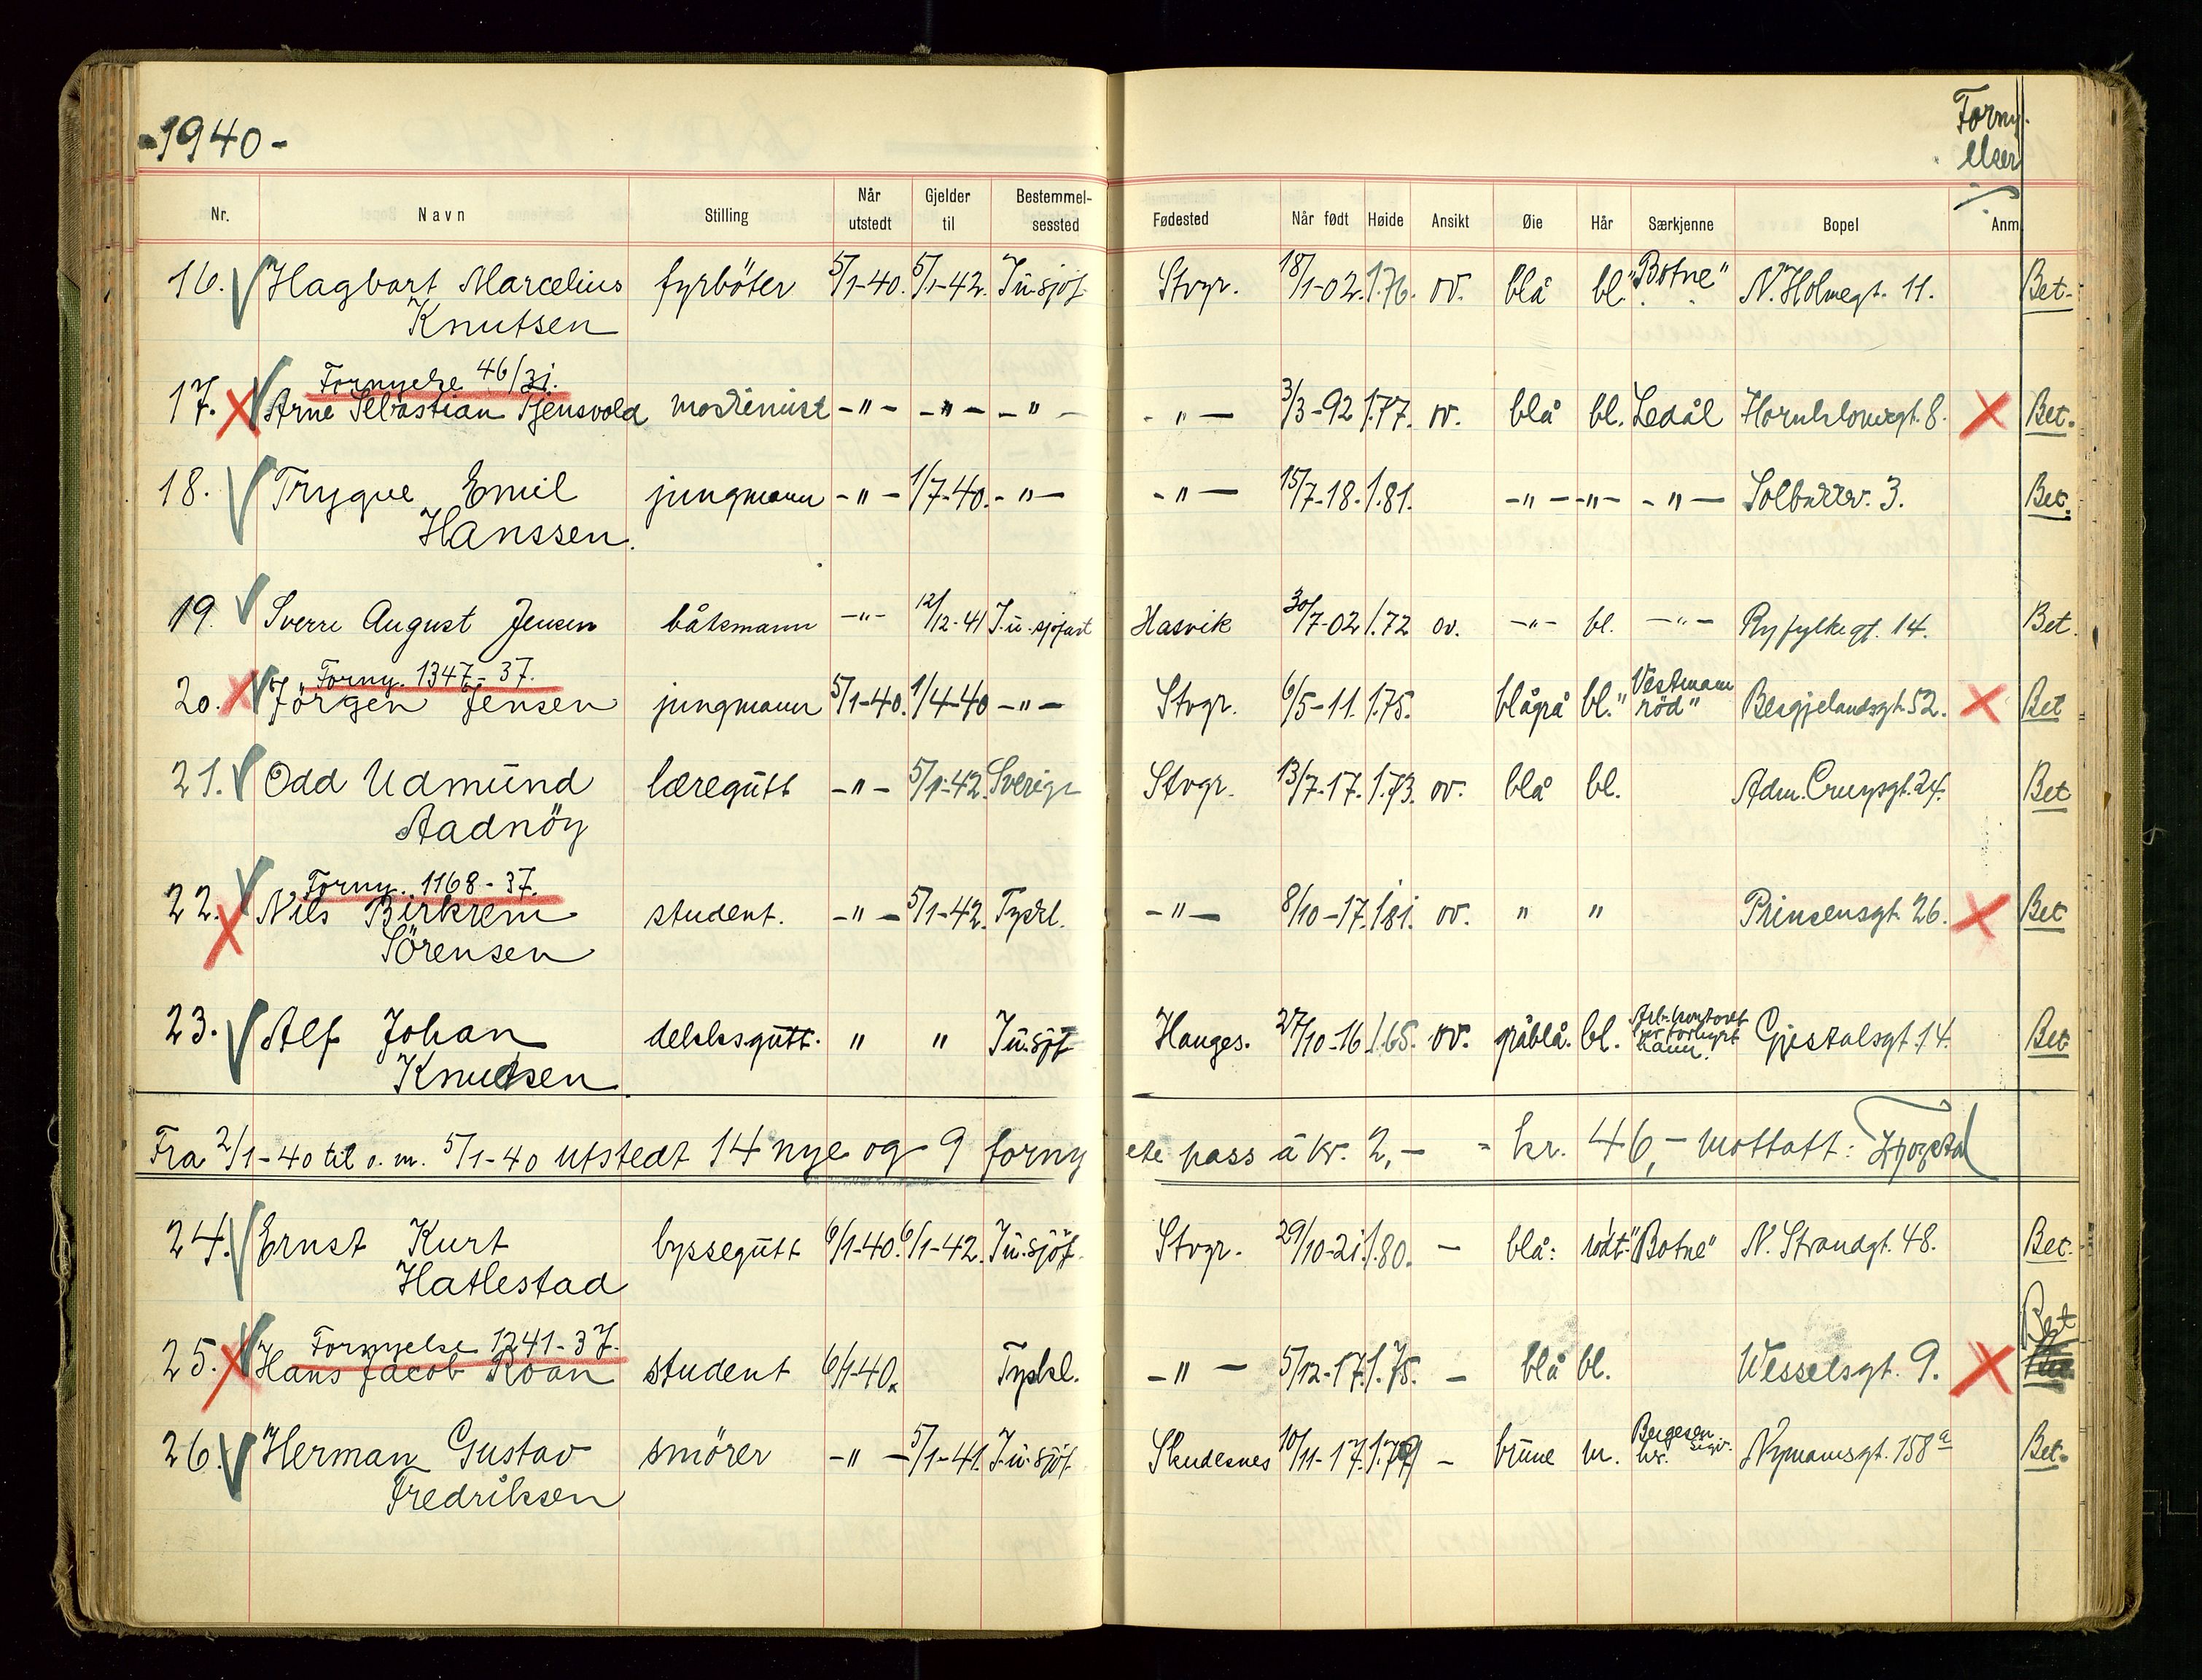 -1940-
Forny-
elser
Nr. Navn Stilling Når utstedt Gjelder til Bestemmel-sessted Fødested Når født Høide Ansikt Øie Hår Særkjenne Bopel Anm
16. Hagbart Marcelius fyrböter 5/1-40. 5/1-42. In.sjöf. Stvgr. 18/1-02. 1.76. ov. blå bl. "Botne" N. Holmegt. 11. Bet.
Knutsen
Fornyelse 46/31.
17. Arne Sebastian Tjensvold maskinist -"- -"- -"- -"- 3/3-92 1.77. ov. blå bl. Ledål 8. Bet.
18. Trygve Emil jungmann -"- 1/7-40. -"- -"- 15/7-18. 1.81. -"- -"- -"- 3. Bet.
Hanssen.
19. Sverre August Jensen båtsmann -"- 12/12-41 In.-sjöfart Hasvik 30/7-02 1.72 ov. -"- bl. -"- Ryfylkegt. 14. Bet.
Forny. 1347-37.
20. Jörgen Jensen jungmann 5/1-40. 1/4-40 -"- Stvgr. 6/5-11. 1.75. blågrå bl. "Vestmanröd" Bergjelandsgt. 52. Bet
21. Odd Udmund læregutt -"- 5/1-42. Sverige Stvgr. 13/7-17. 1.73. ov. blå bl. Adm. Cruysgt. 24. Bet
Aadnöy
Forny. 1168-37.
22. Nils Birkrem student. -"- 5/1-42. Tyskl. -"- 8/10-17. 1.81. ov. " " Prinsensgt. 26. Bet
Sörensen
23. Alf Johan dekksgutt. " " In.sjöf Hauges. 27/10-16 1.65. ov. gråblå. bl. Gjestalsgt. 14. Bet
Knutsen
Fra 2/1-40 til o. m. 5/1-40 utstedt 14 nye og 9 fornyete pass á kr. 2,- = kr. 46,- mottatt:
24. Ernst Kurt byssegutt 6/1-40. 6/1-42. In.sjöf. Stvgr. 29/10-21. 1.80. - blå: rödt. "Botne" N. Strandgt. 48. Bet.
Hatlestad
Bet
Fornyelse 1241-37.
25. Hans Jacob Roan student 6/1-40. Tyskl. -"- 5/12-17. 1.75. - blå bl. Wesselsgt. 9.
26. Herman Gustav smörer -"- 5/1-41. In.sjöf. Skudesnes 10/11-17. 1.79 - brune m. Bergesen Nymansgt. 158a Bet.
Fredriksen